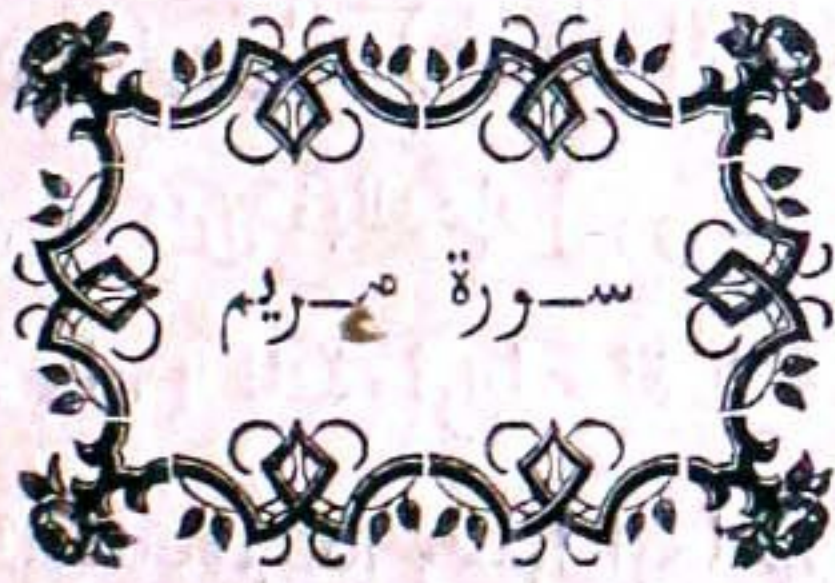 سورة مريم